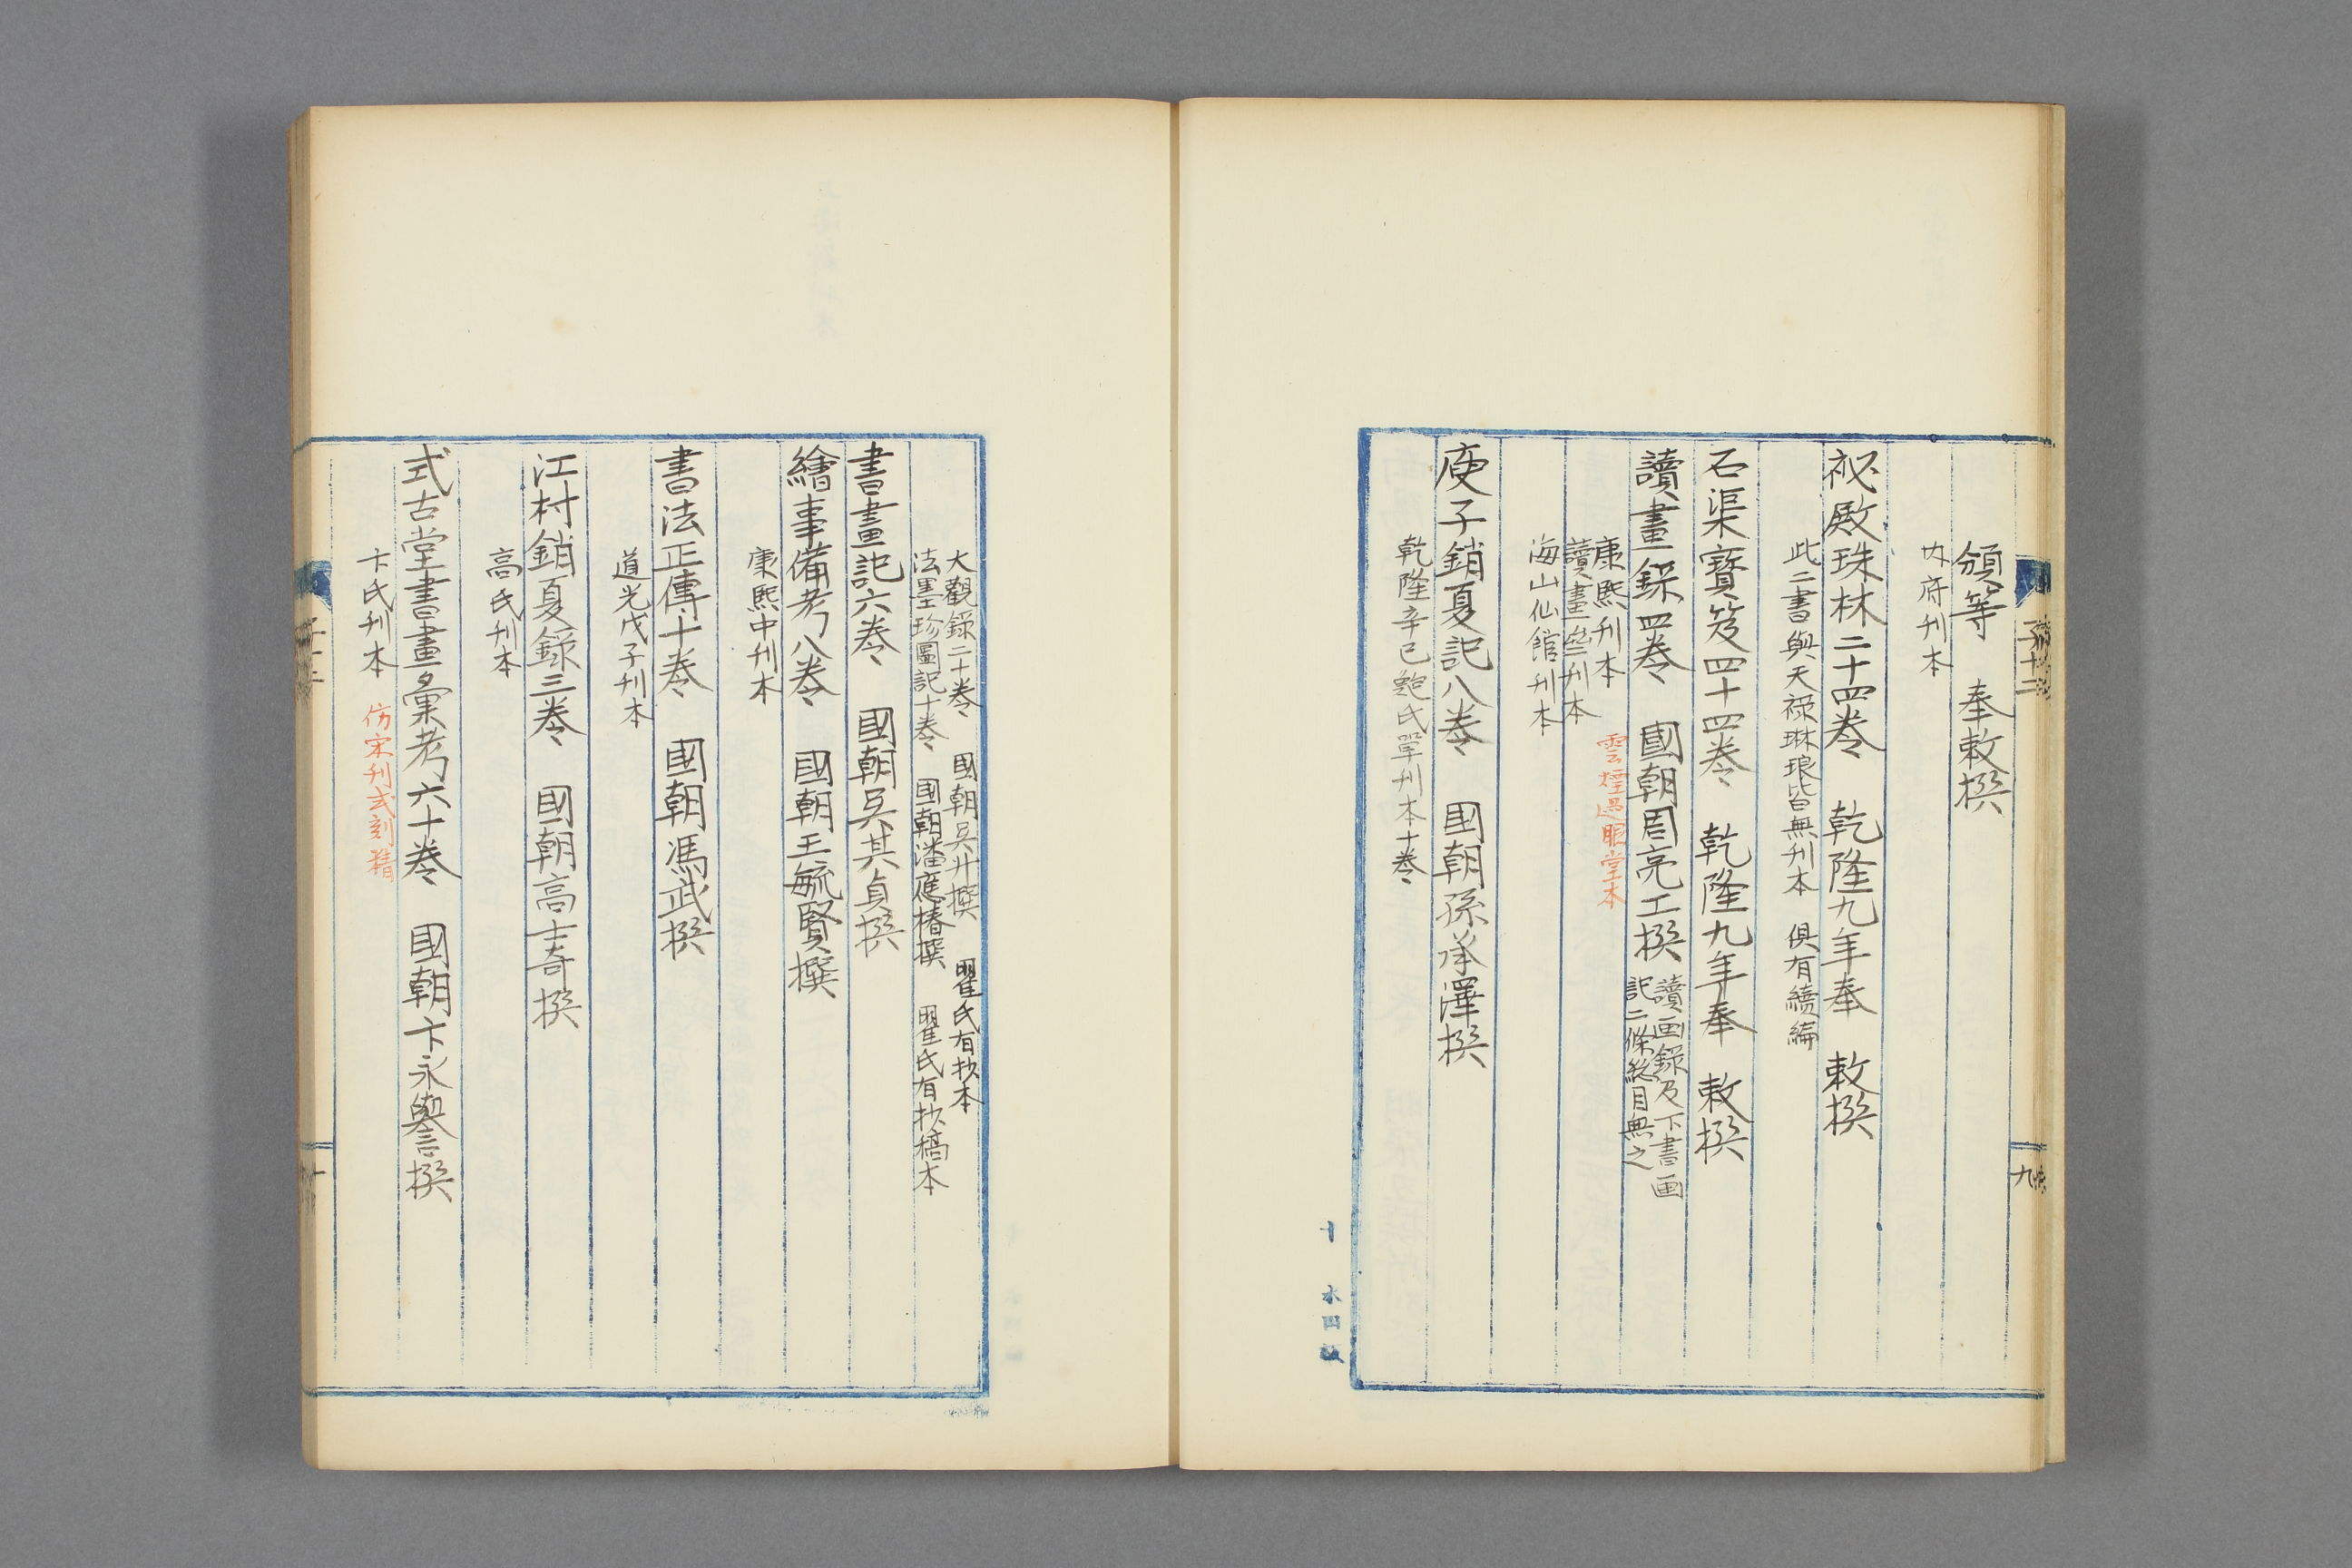 頒等　奉敕撰
内府刊本
祕殿珠林二十四卷　乾隆九年奉　敕撰
此二書與天祿琳琅皆無刊本　俱有續編
石渠寶笈四十四卷　乾隆九年奉　敕撰
讀畫錄四卷　國朝周亮工撰
讀画錄及下書画
記二條總目無之
康熙刊本　雲煙過眼堂本
讀畫齋刊本
海山仙館刊本
庚子銷夏記八卷　國朝孫承澤撰
乾隆辛巳鮑氏單刊本十卷
子十二
九
十
大觀錄二十卷　國朝吳升撰　瞿氏有抄本
法墨珍圖記十卷　國朝潘應椿撰　瞿氏有抄稿本
書畫記六卷　國朝吳其貞撰
繪事備考八卷　國朝王毓賢撰
康熙中刊本
書法正傳十卷　國朝馮武撰
道光戊子刊本
江村銷夏錄三卷　國朝高士奇撰
高氏刊本
式古堂書畫彙考六十卷　國朝卞永譽撰
卞氏刊本　仿宋刊式刻精